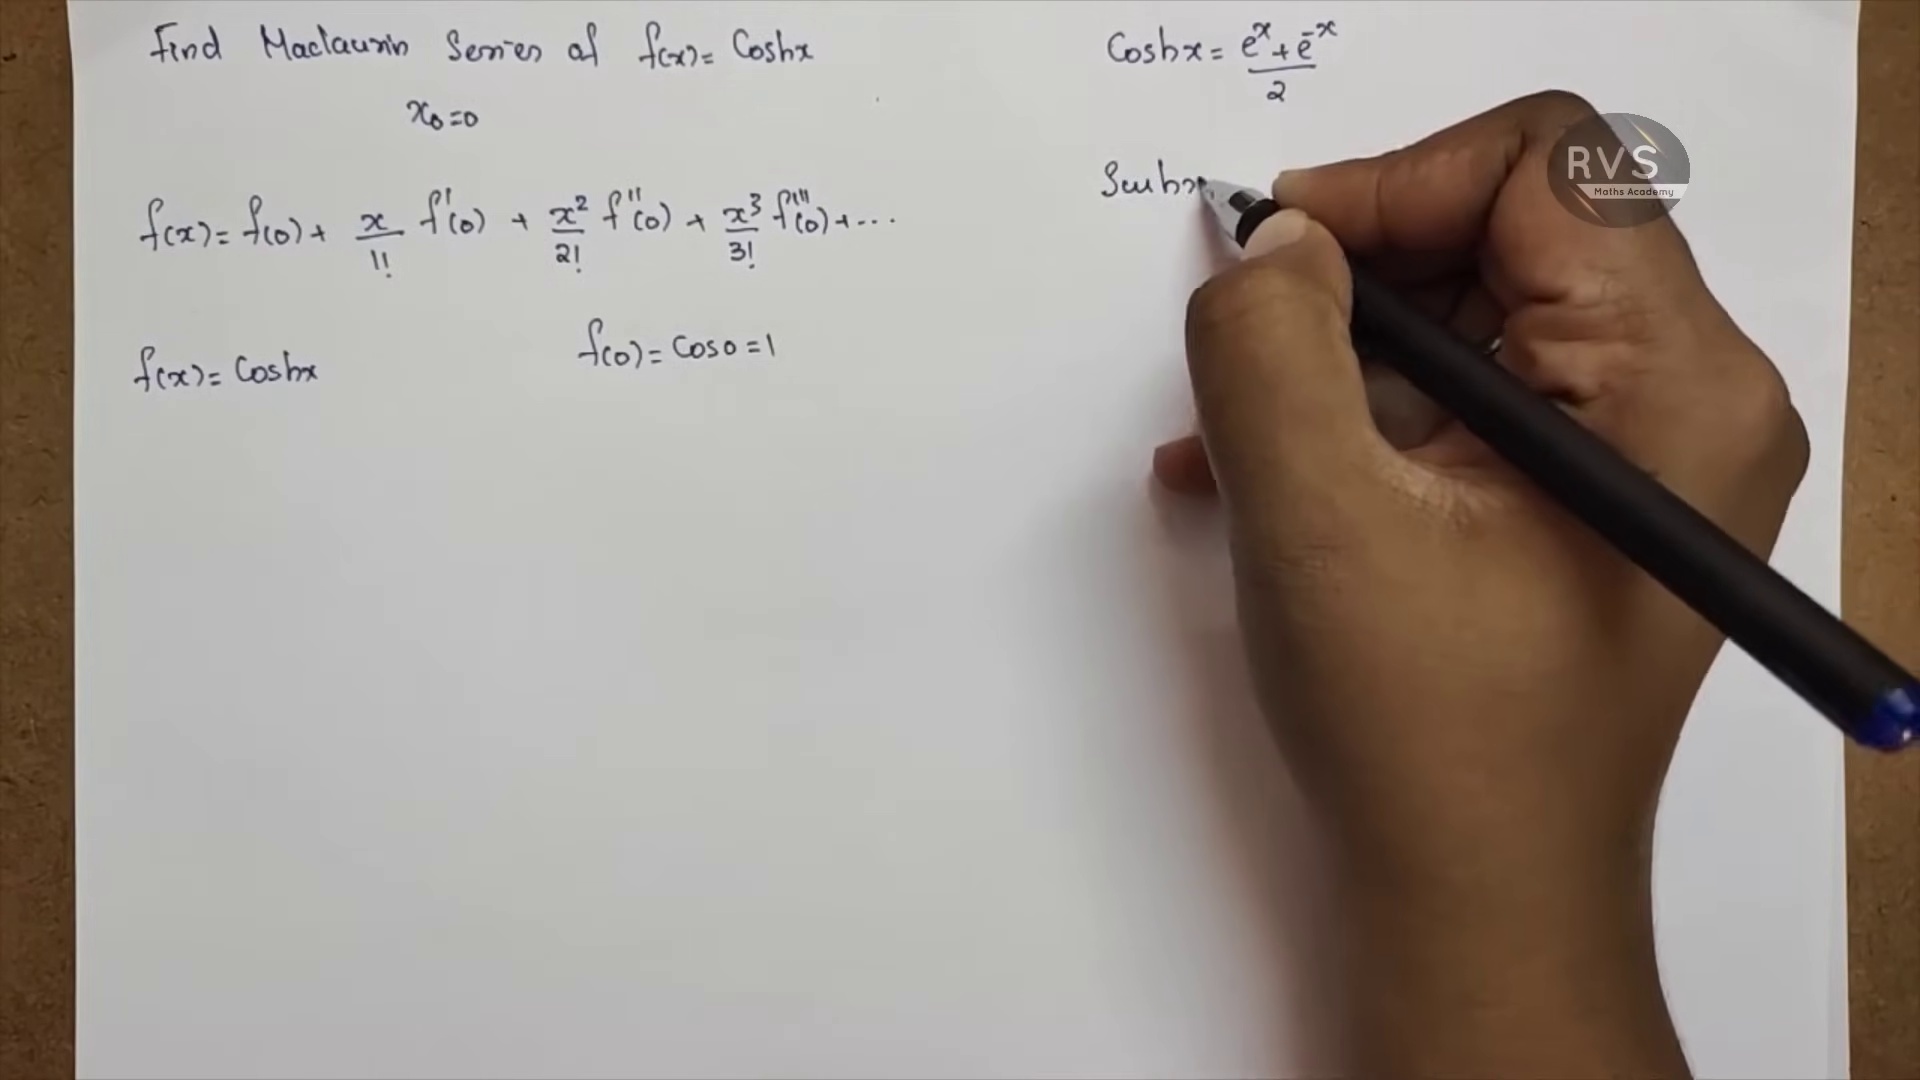 Find Maclaurin Series of f(x) = Coshx
x₀=0
f(x) = f(0) + x/1! f'(0) + x²/2! f''(0) + x³/3! f'''(0) + ...
f(x) = Coshx
f(0) = Cos0 = 1
Coshx = e^x + e^-x / 2
Sinhx
RVS
Maths Academy